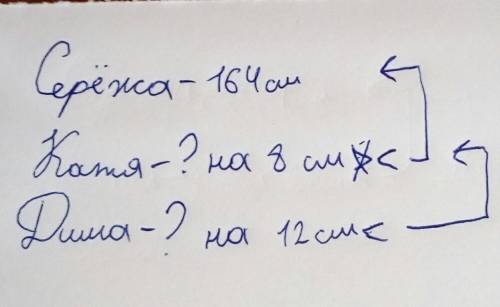 Серёжа - 164см
Катя - ? на 8 см <
Дима - ? на 12см <